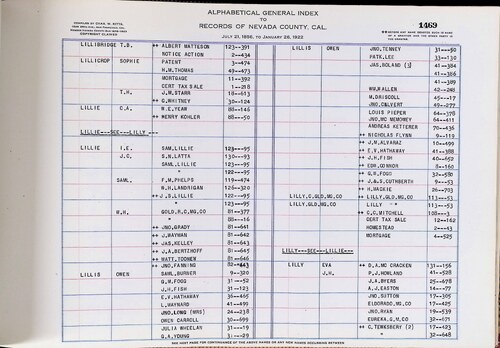 ALPHABETICAL GENERAL INDEX
TO
RECORDS OF NEVADA COUNTY, CAL.
JULY 21, 1856, TO JANUARY 26, 1922
COMPILED BY CHAS. W. KITTS
COPYRIGHT CLAIMED
1469
LILLIBRIDGE T.B. ++ ALBERT MATTESON 123--391
NOTICE ACTION 2--434
LILLICROP SOPHIE PATENT 3--474
H.M. THOMAS 49--473
MORTGAGE 11--392
CERT TAX SALE 1--218
T.H. J.M. STARR 18--613
++ G. WHITNEY 30--124
LILLIE C.A. W.E. YEAR 88--146
++ HENRY KOHLER 88--50
LILLIE---SEE---LILLY
LILLIE I.E. SAM. LILLIE 123--95
J.C. S.N. LATTA 130--93
SAM. LILLIE 123--95
++ " 122--95
SAML. F.M. PHELPS 119--474
W.H. LANDRIGAN 126--320
++ J.S. LILLIE 122--95
++ " 123--95
W.H. GOLD.R.C.MG.CO 81--377
" 86--16
++ JNO. GRADY 81--641
++ J. WAYMAN 81--642
++ JAS. KELLEY 81--643
++ J.A. BERTZHOFF 81--645
++ WATT. TOONEN 81--646
++ JNO. FANNING
LILLIS OWEN SAML. BURNER 9--320
G.M. FOGG 31--52
J.H. FISH 31--123
E.V. HATHAWAY 36--465
L. WAYNARD 41--499
JNO. LONG (MRS) 24--238
OWEN CARROLL 30--699
JULIA WHEELAN 31--19
G.A. YOUNG 31--29
LILLIS OWEN JNO. TENNEY 31--50
PATK. LEE 33--130
JAS. BOLAND (3) 41--384
41--386
41--389
WM.M ALLEN 42--248
M. DRISCOLL 45--17
JNO. CALVERT 49--277
LOUIS PIEPER 64--378
JNO. MC MEMOMEY 84--411
ANDREAS KETTERER 70--436
++ NICHOLAS FLYNN 9--119
++ J.M. ALVARAZ 10--499
++ E.V. HATHAWAY 41--388
++ J.H. FISH 40--652
++ EDW. CONNOR 8--160
++ G.H. FOGG 32--580
++ J.&S. CUTHBERTH 9--53
++ H. MACKIE 26--703
LILLY, C.GLD,MG,CO ++ LILLY, GLD, MG, CO 113--53
LILLY, GLD, MG, CO ++ LILLY " 113--53
++ C.C. MITCHELL 108--3
CERT TAX SALE 12--162
HOMESTEAD 2--43
MORTGAGE 4--525
LILLY---SEE---LILLIE---
LILLY EVA ++ D.A. MC CRACKEN 131--156
J.H. P.J. HOWLAND 41--528
J.A. BYERS 25--678
A.J. EASTON 14--77
JNO. SUTTON 17--305
ELDORADO, MG, CO 17--425
JNO. RYAN 19--539
EUREKA. G.M. CO 30--671
++ C. TEWKSBERY (2) 17--423
++ " 32--648